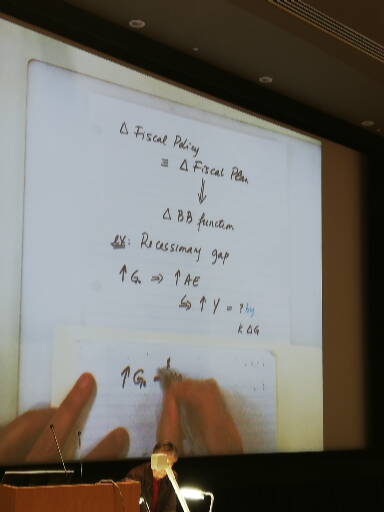 Δ Fiscal Policy
≡ Δ Fiscal Plan
⇓
Δ BB function
ex: Recessionary gap
↑G ⇒ ↑AE
↳ ↑Y = ? by
k ΔG
↑G